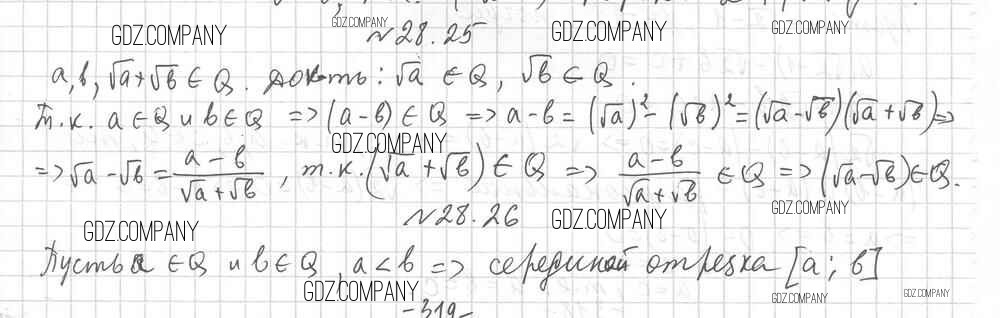 GDZ.COMPANY GDZ.COMPANY GDZ.COMPANY GDZ.COMPANY
№28.25
a, b, √a+√b ∈ Q. Док-ть: √a ∈ Q, √b ∈ Q.
Т.к. a ∈ Q и b ∈ Q => (a-b) ∈ Q => a-b = (√a)² - (√b)² = (√a-√b)(√a+√b) =>
GDZ.COMPANY
=> √a-√b = (a-b)/(√a+√b), т.к. (√a+√b) ∈ Q => (a-b)/(√a+√b) ∈ Q => (√a-√b) ∈ Q.
№28.26
GDZ.COMPANY GDZ.COMPANY GDZ.COMPANY
Пусть a ∈ Q и b ∈ Q, a < b => серединой отрезка [a; b]
GDZ.COMPANY GDZ.COMPANY GDZ.COMPANY
-319-